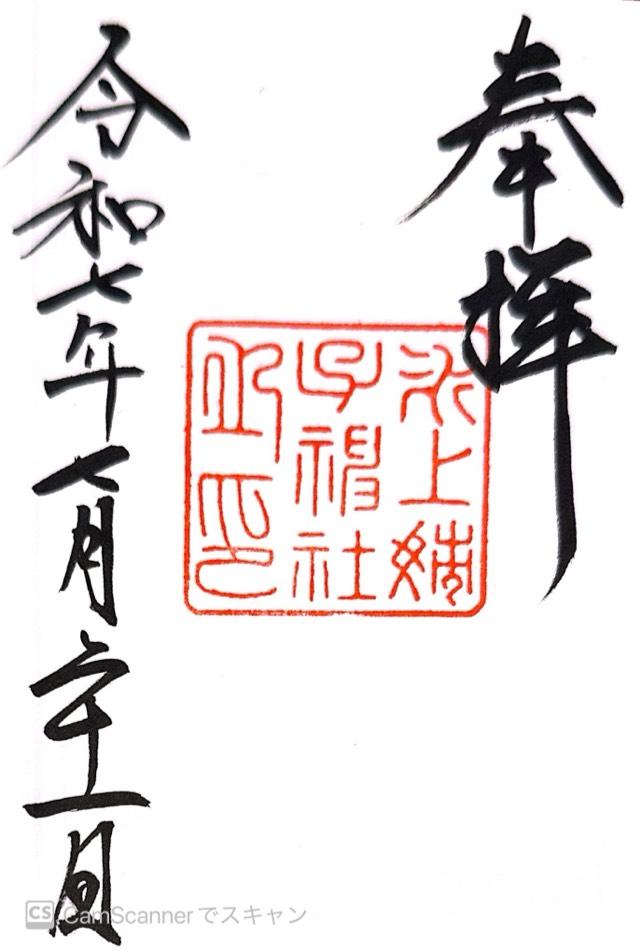 奉拝
氷上姉
子神社
印
令和七年七月二十一日
CS CamScannerでスキャン